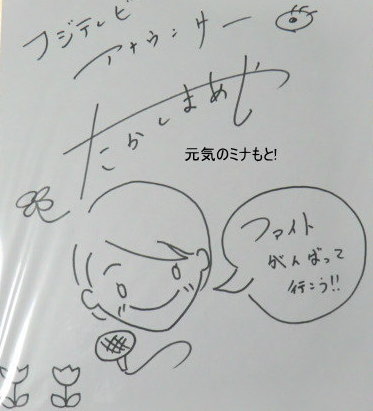 フジテレビ
アナウンサー
たかしまめぐ
元気のミナもと!
ファイト
がんばって
行こう!!